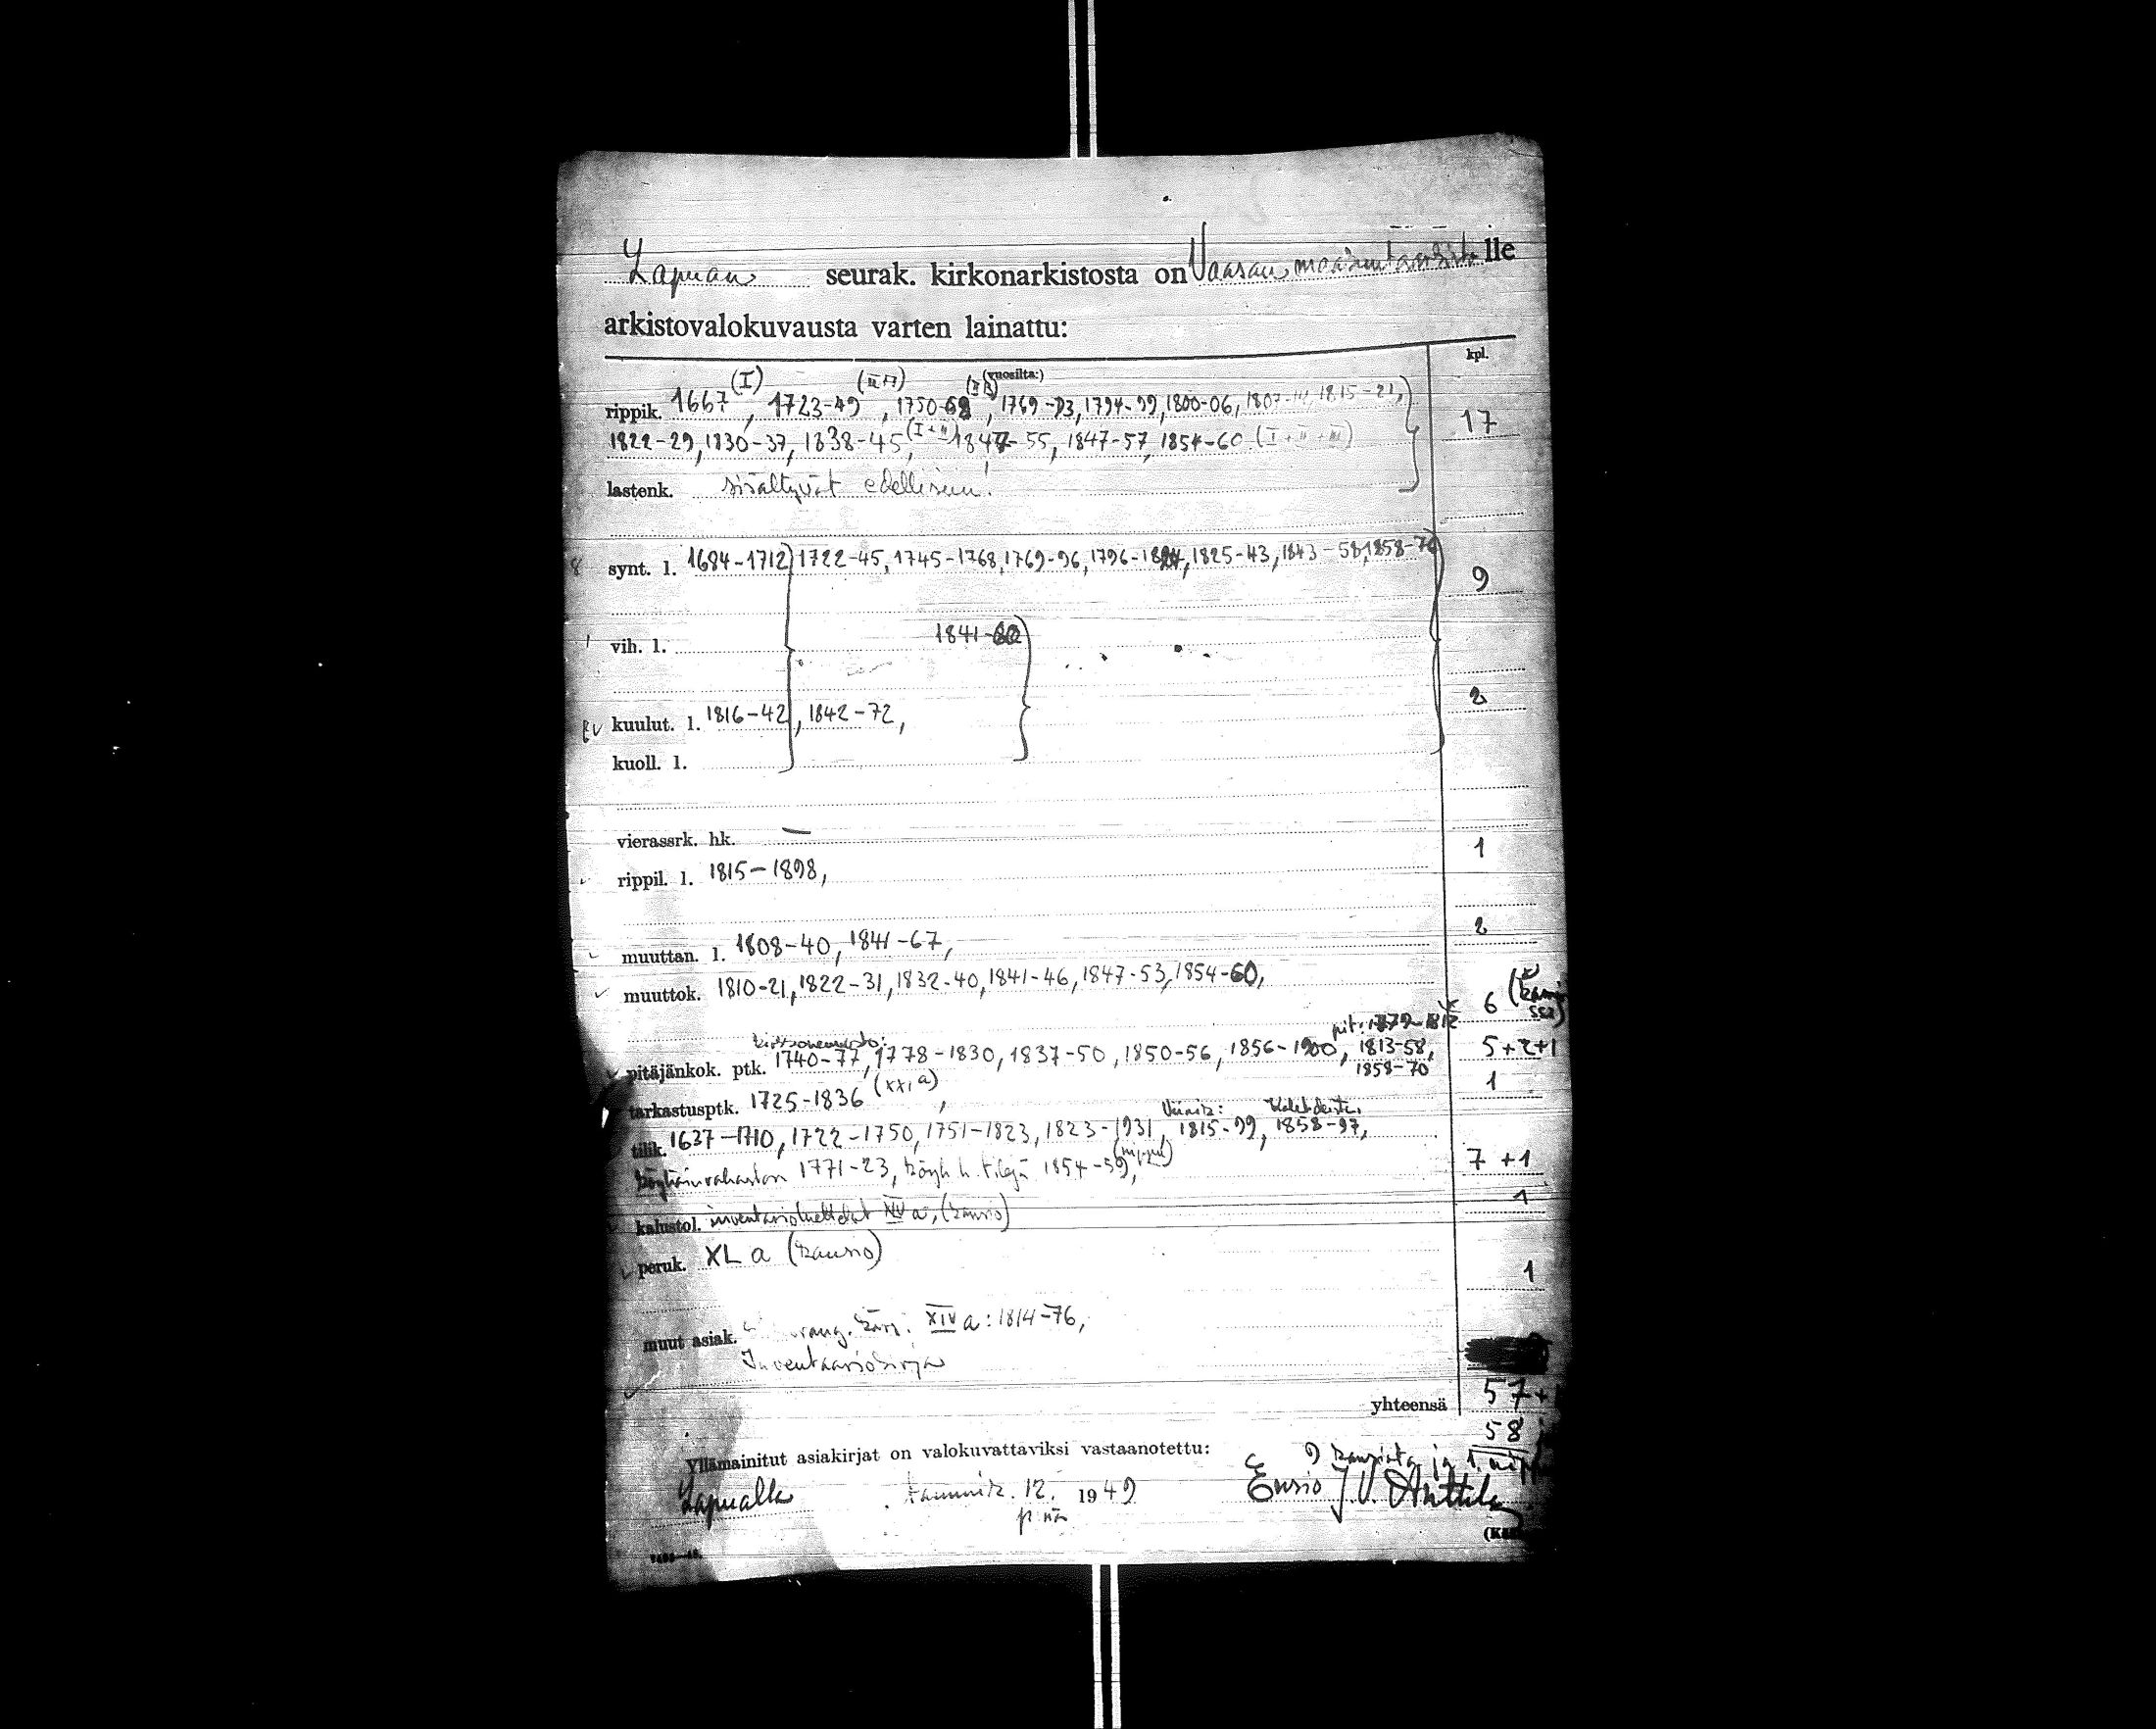 Lapuan seurak. kirkonarkistosta on Vaasan maakunta-arkistolle
arkistovalokuvausta varten lainattu:
kpl.
(I) (II A) (II B) (vuosilta:)
rippik. 1667, 1723-49, 1750-68, 1769-93, 1794-99, 1800-06, 1807-14, 1815-21,
17
1822-29, 1830-37, 1838-45 (I+II), 1847-55, 1847-57, 1854-60 (I+II+III)
lastenk. sisältyvät edellisiin!
8 synt. l. 1684-1712, 1722-45, 1745-1768, 1769-96, 1796-1824, 1825-43, 1843-58, 1858-70
9
1 vih. l. 1841-60
2
kuulut. l. 1816-42, 1842-72,
kuoll. l.
vierassrk. hk. —
1
rippil. l. 1815-1898,
2
muuttan. l. 1808-40, 1841-67,
muuttok. 1810-21, 1822-31, 1832-40, 1841-46, 1847-53, 1854-60,
6
pit: 1779-1812
pitäjänkok. ptk. 1740-77, 1778-1830, 1837-50, 1850-56, 1856-1900, 1813-58,
5+2+1
1858-70
tarkastusptk. 1725-1836 (XXI a),
1
tilik. 1637-1710, 1722-1750, 1751-1823, 1823-1931, 1815-99, 1858-97,
(nippu)
1771-23, 1854-59,
7 +1
1
kalustol. inventarioluettelot XIV a, (kansio)
peruk. XL a (kansio)
1
muut asiak. XIV a: 1814-76,
Inventaariokirja
yhteensä 57+
58
Yllämainitut asiakirjat on valokuvattaviksi vastaanotettu:
9 kansiota ja 1 nippu
Lapualla tammik. 12. p:nä 1949 Ensio J.V. Anttila